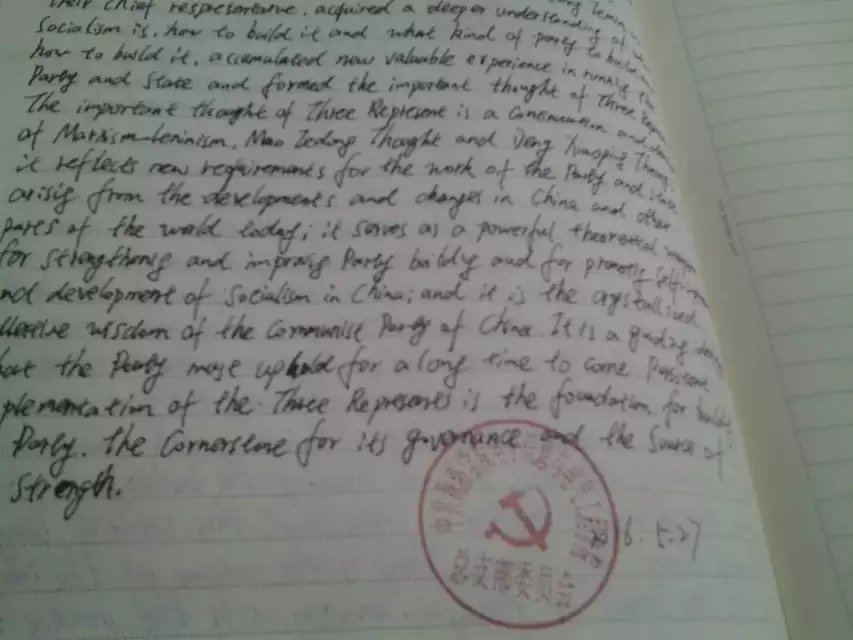 their chief respresentative. acquired a deeper understanding of
Socialism is, how to build it and what kind of party to build
how to build it, accumulated new valuable experience in running the
Party and State and formed the important thought of Three Repr
The important thought of Three Represent is a Continuation and
of Marxism-Leninism, Mao Zedong Thought and Deng Xiaoping Thoug
it reflects new requirements for the work of the Party and State
arisig from the developments and changes in China and other
pares of the world today; it serves as a powerful theoretical
for strengthenig and improvig Party buildig and for promotig self-
nd development of Socialism in China; and it is the crystallized
llective wisdom of the Communist Party of China. It is a guiding
hat the Party must uphold for a long time to come Persistent
plementation of the Three Represents is the foundation for build
Party. the Cornerstone for its governance and the Source of
Strength.
6.5.27
中共
工程学院
总支部委员